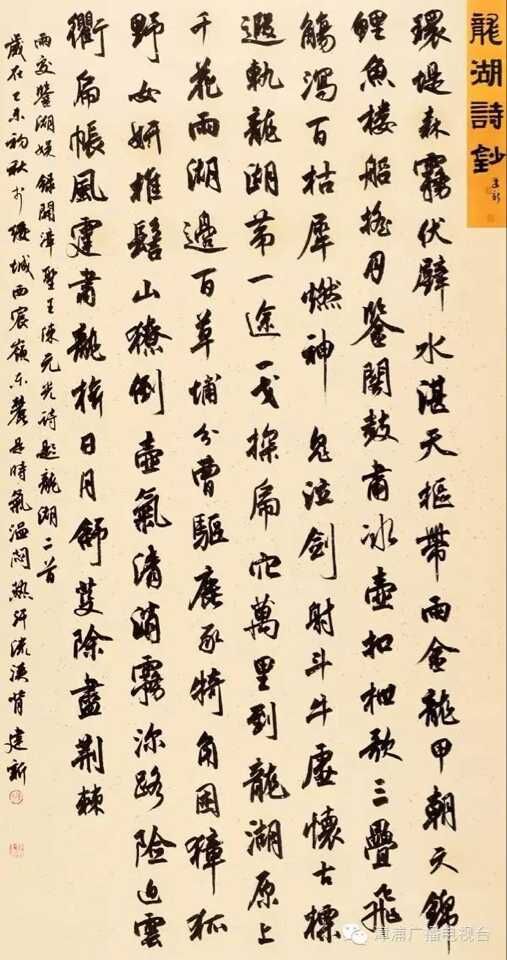 龍湖詩鈔
建新
環堤森霧伏辟水湛天樞帶雨金龍甲朝天錦
鯉魚樓船搖月鑒闉鼓肅冰壺扣枻歌三疊飛
觴瀉百枯犀燃神鬼泣劍射斗牛虛懷古標
遐軌龍湖第一途一戈探虎穴萬里到龍湖原上
千花雨湖邊百草埔分曹驅鹿豕犄角困獐狐
野女妍椎髻山獠倒壺氣清消霧沴路險迫雲
衢虎帳風霆肅龍旂日月舒芟除盡荊棘
錄開漳聖王陳元光詩題龍湖二首
歲在乙未初秋於綏城西宸嶺東麓是時氣溫悶熱汗流浹背建新
漳浦广播电视台